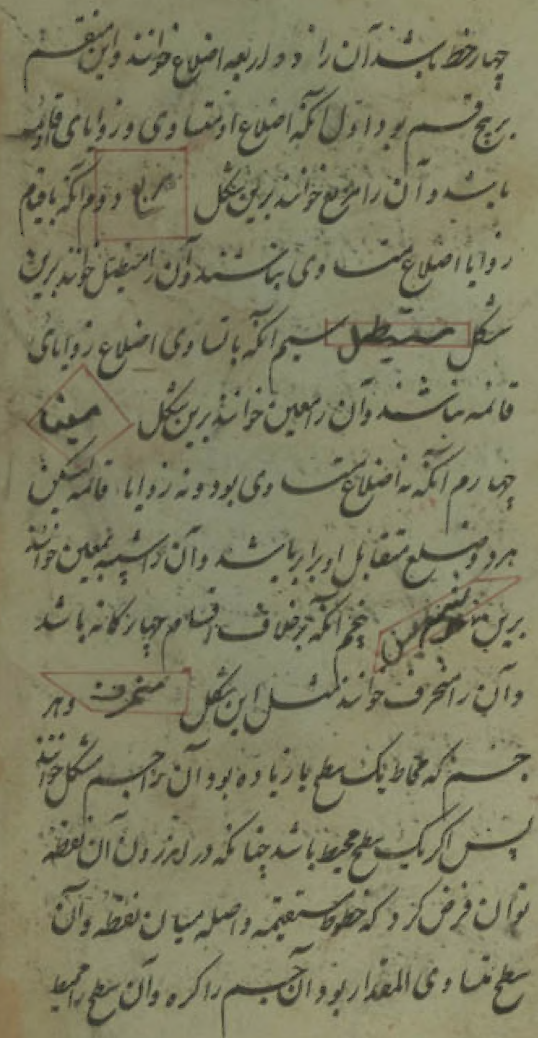 چهار خط باشد آن را ذو اربعه اضلاع خوانند و این منقسم
بر پنج قسم بود اول آنکه اضلاع او متساوی و زوایای قائمه
باشد و آن را مربع خوانند برین شکل مربع دوم آنکه با قیام
زوایا اضلاع متساوی نباشند و آن را مستطیل خوانند برین
شکل مستطیل سیم آنکه با تساوی اضلاع زوایای
قائمه نباشند و آن را معین خوانند برین شکل معین
چهارم آنکه نه اضلاع متساوی بود و نه زوایا قائمه لیکن
هر دو ضلع متقابل او برابر باشد و آن را شبیه بمعین خوانند
برین پنجم آنکه بر خلاف اقسام چهارگانه باشد
و آن را منحرف خوانند مثل این شکل منحرف و هر
جسم که محاط یک سطح یا زیاده بود آن را جسم مشکل خوانند
پس اگر یک سطح محیط باشد چنانکه در اندرون آن نقطه
توان فرض کرد که خطوط مستقیمه واصله میان نقطه و آن
سطح متساوی المقدار بود آن جسم را کره و آن سطح را محیط